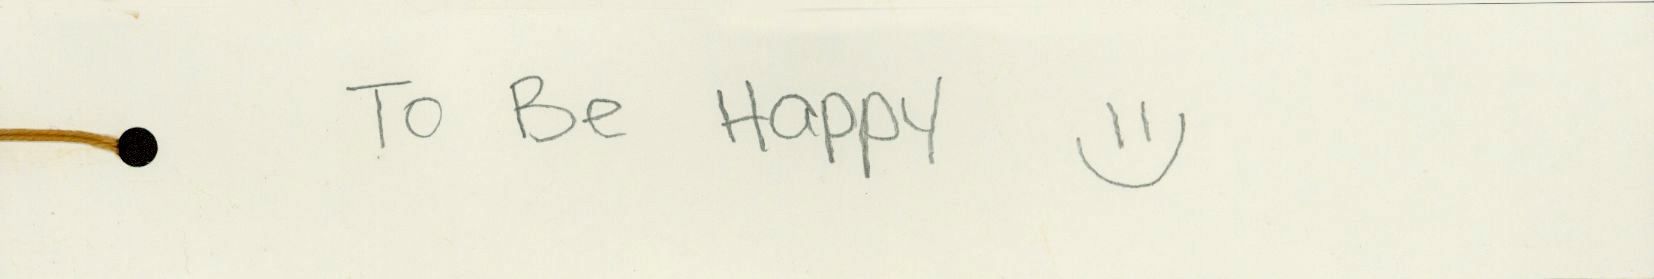 To Be Happy